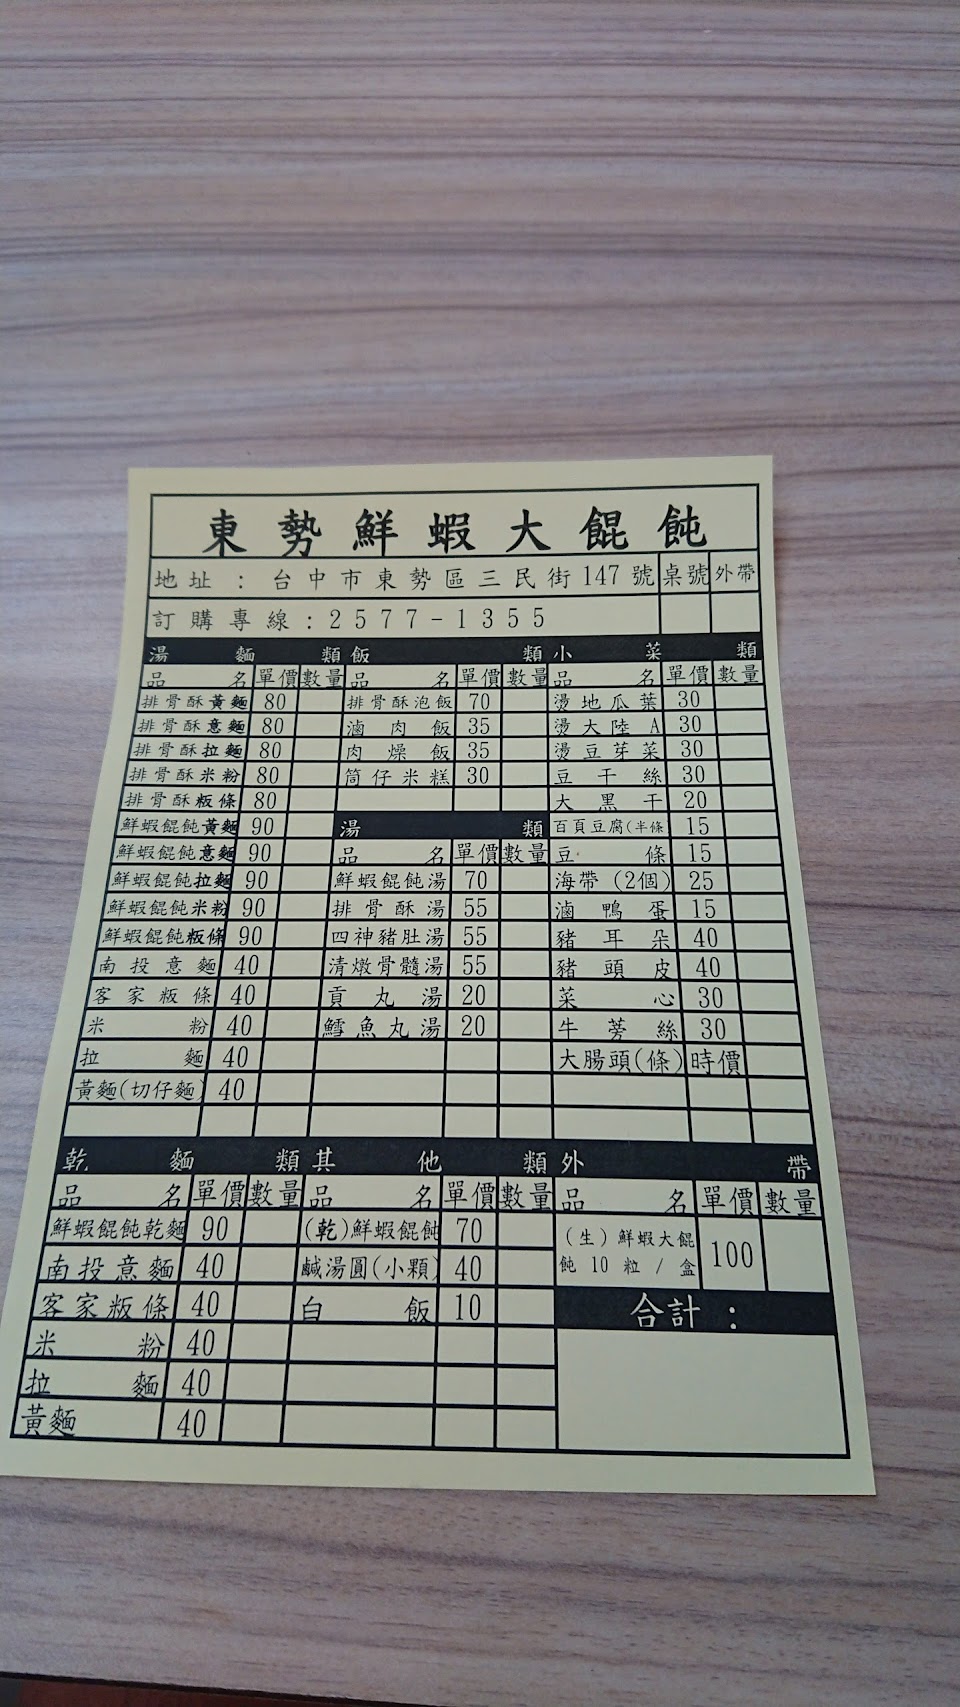 東勢鮮蝦大餛飩
地址：台中市東勢區三民街147號 桌號 外帶
訂購專線：2577-1355
湯麵類
品名 單價 數量
排骨酥黃麵 80
排骨酥意麵 80
排骨酥拉麵 80
排骨酥米粉 80
排骨酥粄條 80
鮮蝦餛飩黃麵 90
鮮蝦餛飩意麵 90
鮮蝦餛飩拉麵 90
鮮蝦餛飩米粉 90
鮮蝦餛飩粄條 90
南投意麵 40
客家粄條 40
米粉 40
拉麵 40
黃麵(切仔麵) 40
飯類
品名 單價 數量
排骨酥泡飯 70
滷肉飯 35
肉燥飯 35
筒仔米糕 30
湯類
品名 單價 數量
鮮蝦餛飩湯 70
排骨酥湯 55
四神豬肚湯 55
清燉骨髓湯 55
貢丸湯 20
鱈魚丸湯 20
小菜類
品名 單價 數量
燙地瓜葉 30
燙大陸A 30
燙豆芽菜 30
豆干絲 30
大黑干 20
百頁豆腐(半條 15
豆條 15
海帶(2個) 25
滷鴨蛋 15
豬耳朵 40
豬頭皮 40
菜心 30
牛蒡絲 30
大腸頭(條) 時價
乾麵類
品名 單價 數量
鮮蝦餛飩乾麵 90
南投意麵 40
客家粄條 40
米粉 40
拉麵 40
黃麵 40
其他類
品名 單價 數量
(乾)鮮蝦餛飩 70
鹹湯圓(小顆) 40
白飯 10
外帶
品名 單價 數量
(生)鮮蝦大餛
飩10粒/盒 100
合計：